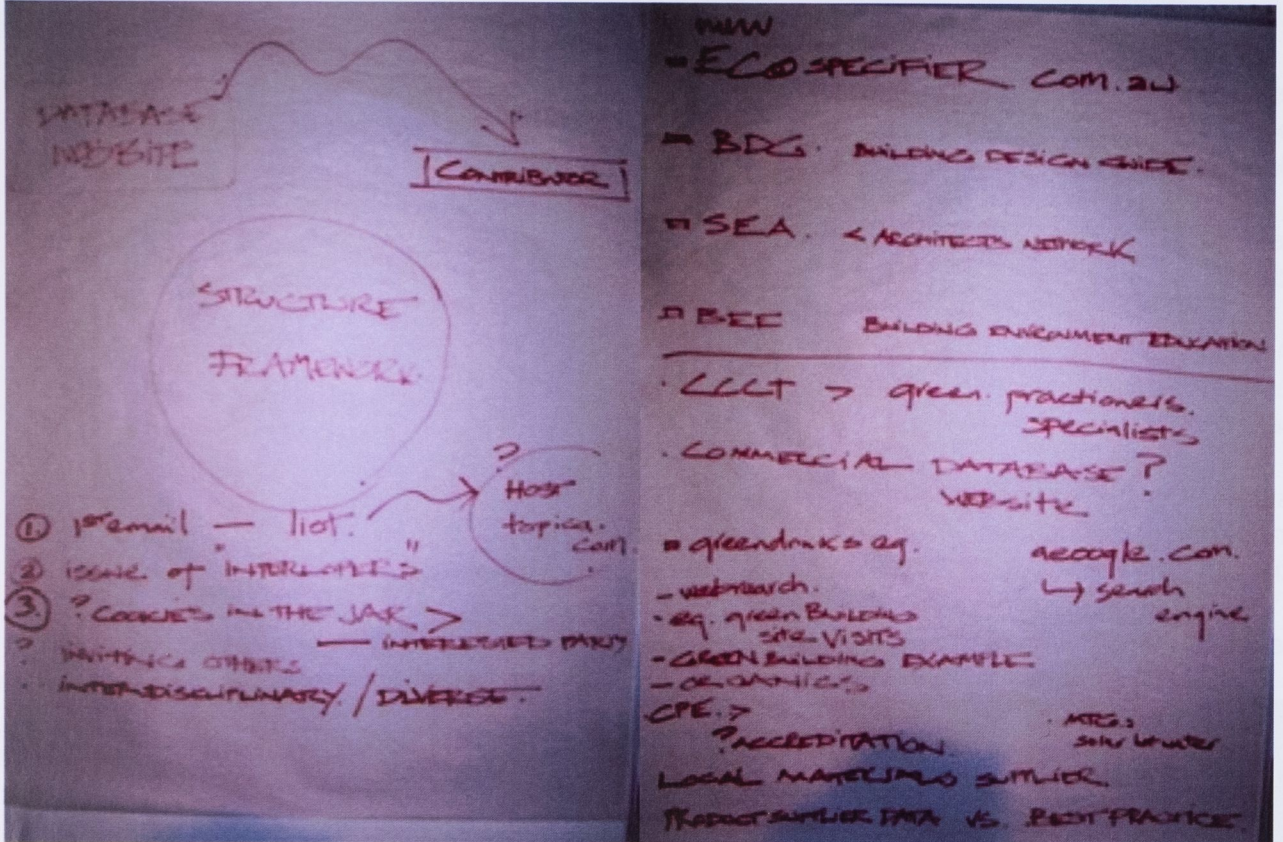 DATABASE
WEBSITE
CONTRIBUTOR
STRUCTURE
FRAMEWORK
?
HOST
topica.
com.
① 1st email — list.
② issue of "INTERLOPERS"
③ ? COOKIES IN THE JAR >
— INTERESTED PARTY
? INVITING OTHERS
. INTERDISCIPLINARY / DIVERSE.
new
- ECOSPECIFIER com.au
- BDG. BUILDING DESIGN GUIDE.
- SEA. < ARCHITECTS NETWORK
- BEE BUILDING ENVIRONMENT EDUCATION
. CCCT > green. practioners.
specialists
. COMMERCIAL DATABASE ?
WEBsite
- greendrinks eg. aeoogle.com.
- web search. ↳ search
engine
- eg. green BUILDING
site VISITS
- GREEN BUILDING EXAMPLE
- ORGANICS
CPE. > . MTG:
? ACCREDITATION solar hot water
LOCAL MATERIALS SUPPLIER.
PRODUCT SUPPLIER DATA VS. BEST PRACTICE.